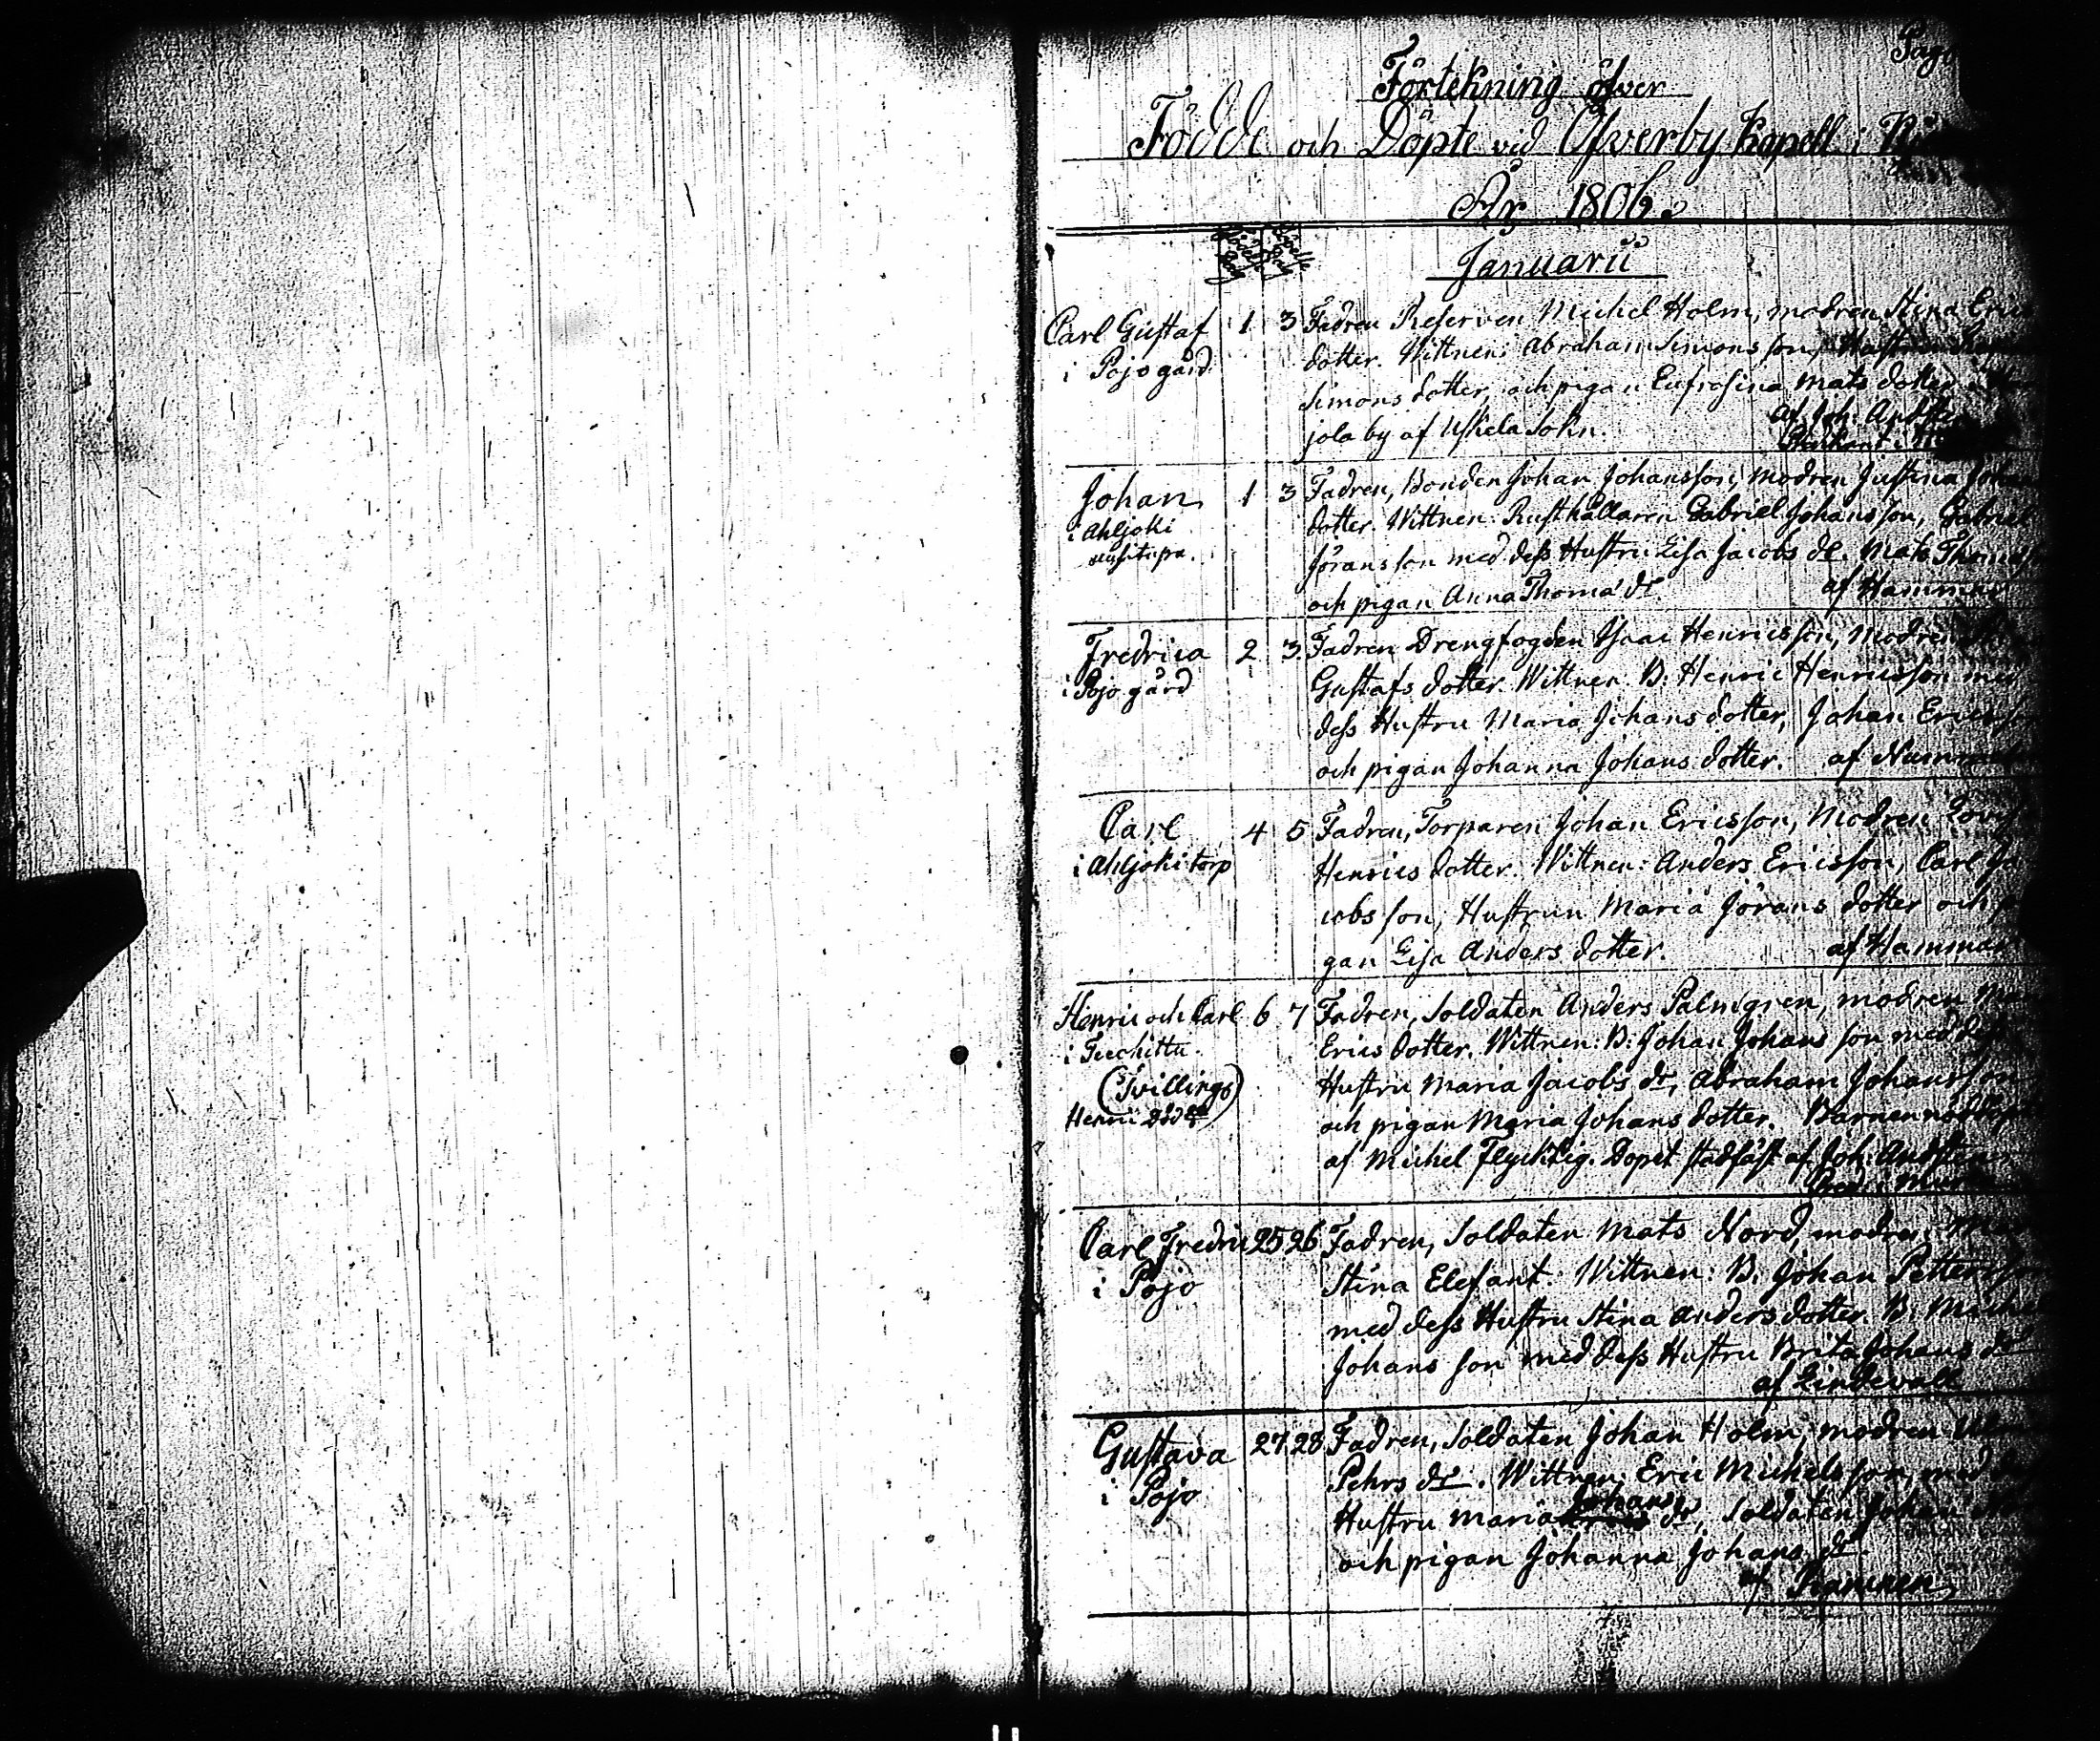 Förtekning öfver
Födde och Döpte vid Öfverby Kapell i
År 1806.
Januarii
Carl Gustaf 1 3 Fadren Reserven Michel Holm, modren Stina Eric
i Pojo gård dotter. Wittnen: Abraham Simons son, Hustrun
Simons dotter, och pigan Eufrosina Mats dotter
jola by af Uskela Sokn. af Joh:
Johan 1 3 Fadren, Bonden Johan Johansson, modren Justina Johan
i Ahljoki dotter. Wittnen: Rusthållaren Gabriel Johans son, Gabriel
Jörans son med dess Hustru Lisa Jacobs dr. Mats Thomas
och pigan Anna Thoma dr. af Hammar
Fredrica 2 3. Fadren Drengfogden Isaac Henricsson, Modren
i Pojo gård Gustafs dotter. Wittnen. B: Henric Henricsson med
dess Hustru Maria Johans dotter, Johan Ericsson
och pigan Johanna Johans dotter. af
Carl 4 5 Fadren, Torparen Johan Ericsson, Modren Lovisa
i Ahljoki torp Henrics dotter. Wittnen: Anders Ericsson, Carl Ja
cobs son, Hustrun Maria Jörans dotter och p
gan Lisa Anders dotter. af Hammar
Henric och Carl 6 7 Fadren, Soldaten Anders Palmgren, modren Mar
i Erics dotter. Wittnen: B: Johan Johans son med dess
(Tvillingr) Hustru Maria Jacobs dr, Abraham Johansson
Henric Död och pigan Maria Johans dotter. Barnen nöddöpt
af Michel Flycktig. Dopet stadfäst af Joh:
Carl Fredric 25 26 Fadren, Soldaten Mats Nord, modren Mar
i Pojo Stina Elefant. Wittnen: B. Johan Pettersson
med dess Hustru Stina Anders dotter. B. Michel
Johans son med dess Hustru Brita Johans dr
af Lindewall
Gustava 27. 28 Fadren, Soldaten Johan Holm, modren Ul
i Pojo Pehrs dr. Wittnen: Eric Michels son, med dess
Hustru Maria Johans dr, Soldaten Johan
och pigan Johanna Johans dr.
af